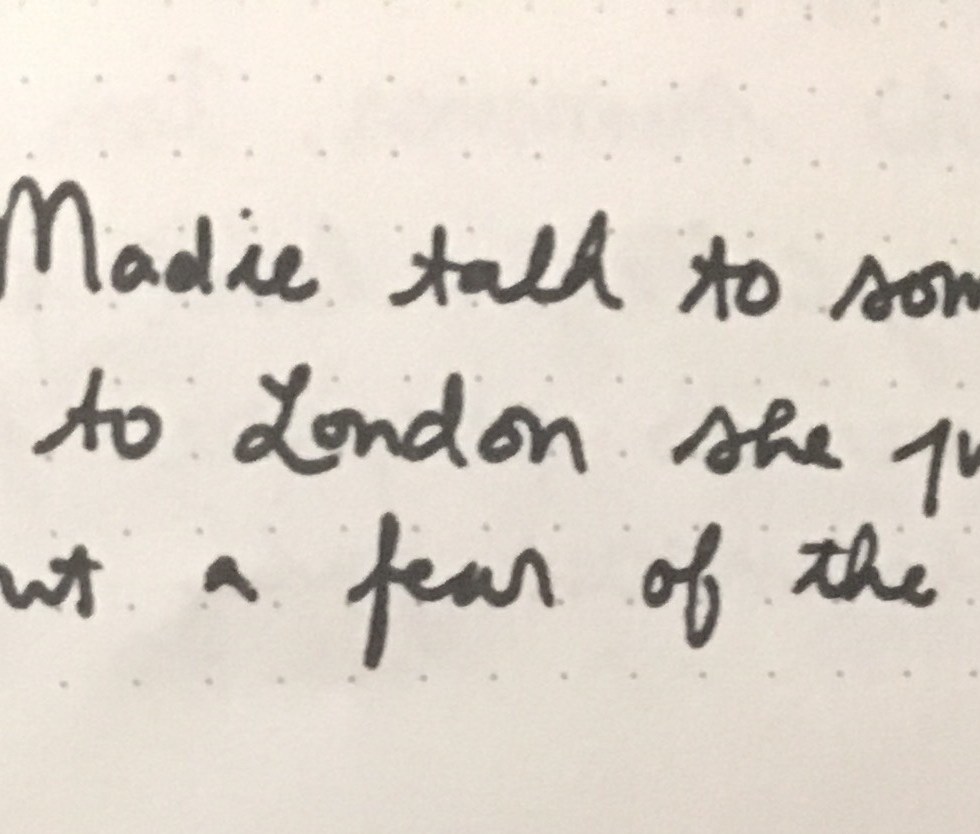 Madie talk to som
to London she
a fear of the